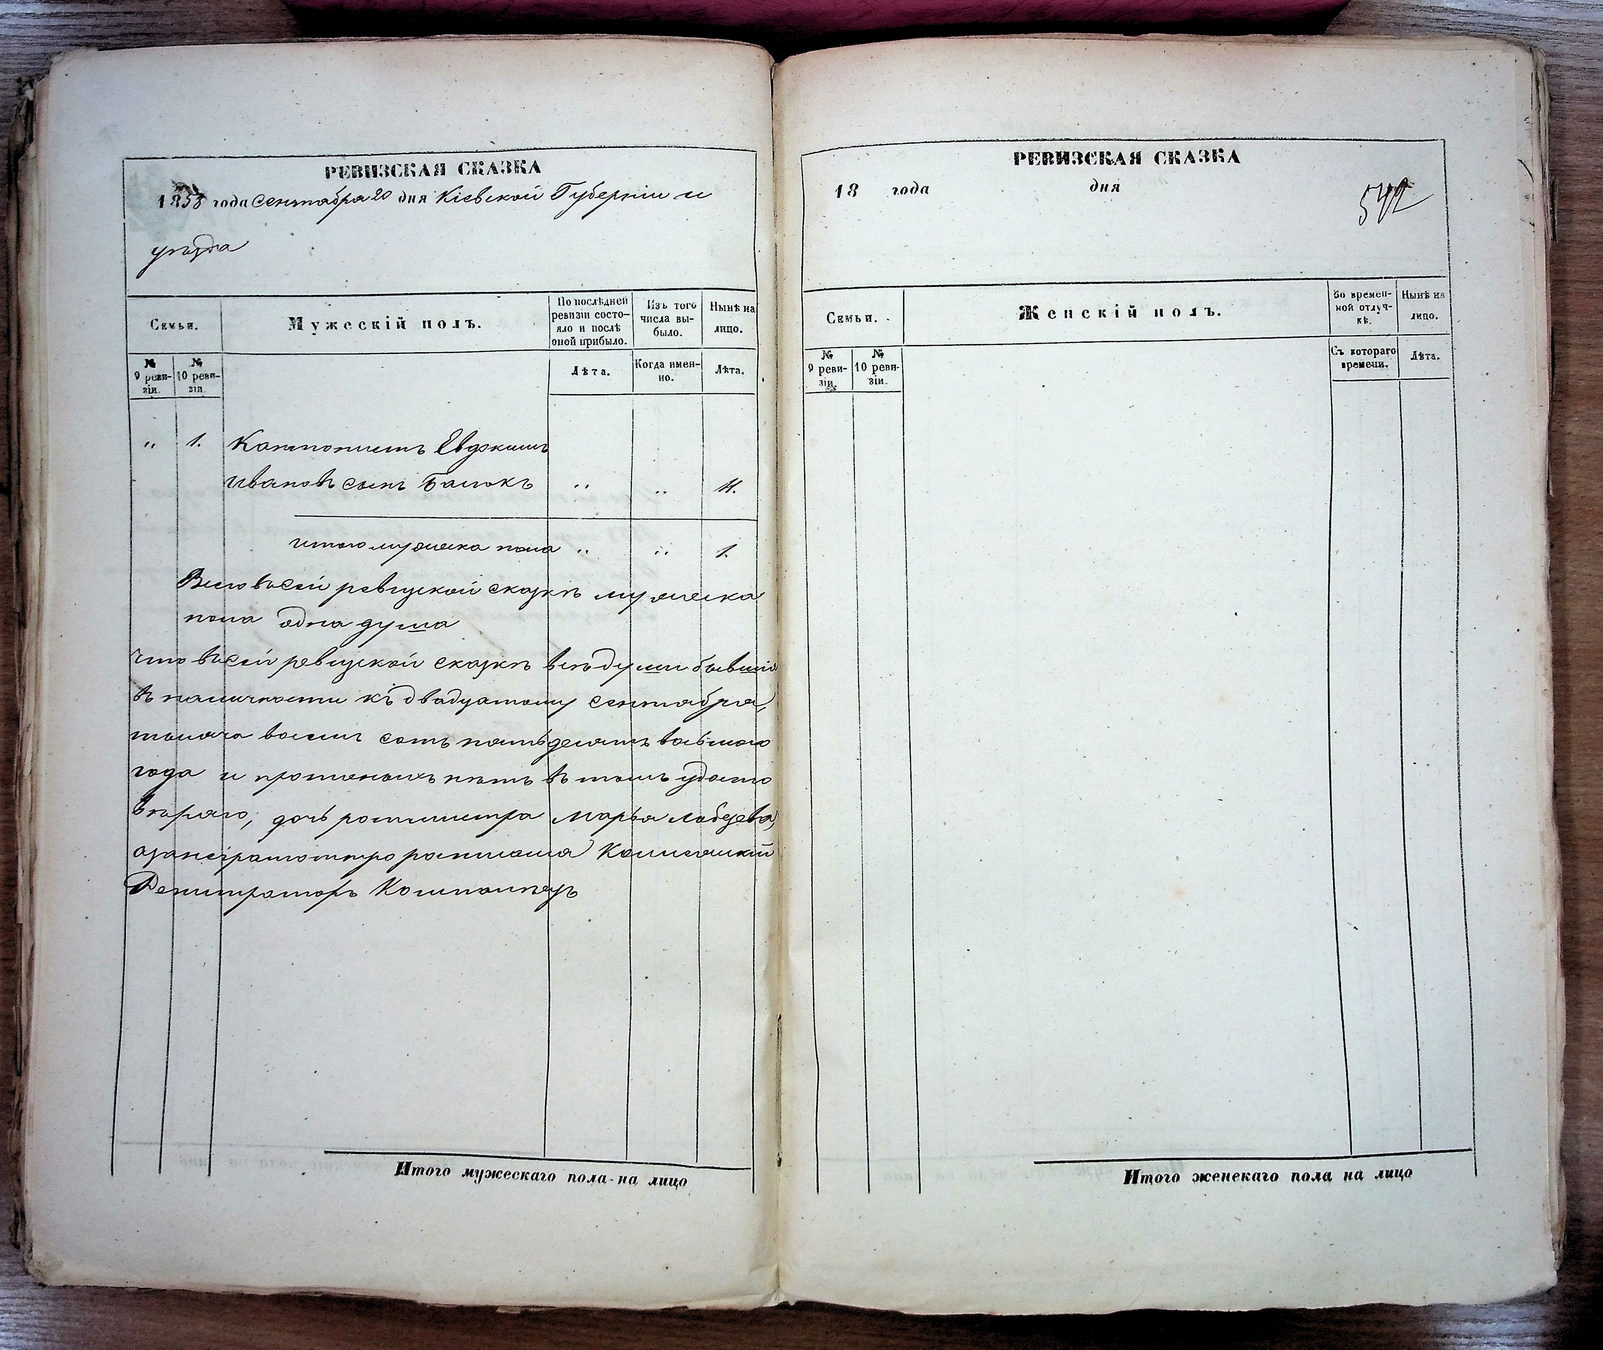 РЕВИЗСКАЯ СКАЗКА
1858 года сентября 20 дня Кіевской Губерніи и
уѣзда
Семьи.
Мужескій полъ.
По послѣдней ревизіи состояло и послѣ оной прибыло.
Изъ того числа выбыло.
Нынѣ на лицо.
№ 9 ревизіи.
№ 10 ревизіи.
Лѣта.
Когда именно.
Лѣта.
„ 1. Кантонистъ Евдокимъ
Ивановъ сынъ „ „ 11.
итого мужеска пола „ „ 1.
Всего въ сей ревизской сказкѣ мужеска
пола одна душа
Что въ сей ревизской сказкѣ всѣ души бывшіе
въ наличности къ двадцатому сентября,
тысяча восемь сотъ пятьдесятъ восьмого
года и прописныхъ нѣтъ въ томъ удосто
вѣряю, дочь ротмистра Марья
росписался Коллежскій
Регистраторъ
РЕВИЗСКАЯ СКАЗКА
18 года дня
542
Семьи.
Женскій полъ.
Во временной отлучкѣ.
Нынѣ на лицо.
№ 9 ревизіи.
№ 10 ревизіи.
Съ котораго времени.
Лѣта.
Итого мужескаго пола на лицо
Итого женскаго пола на лицо